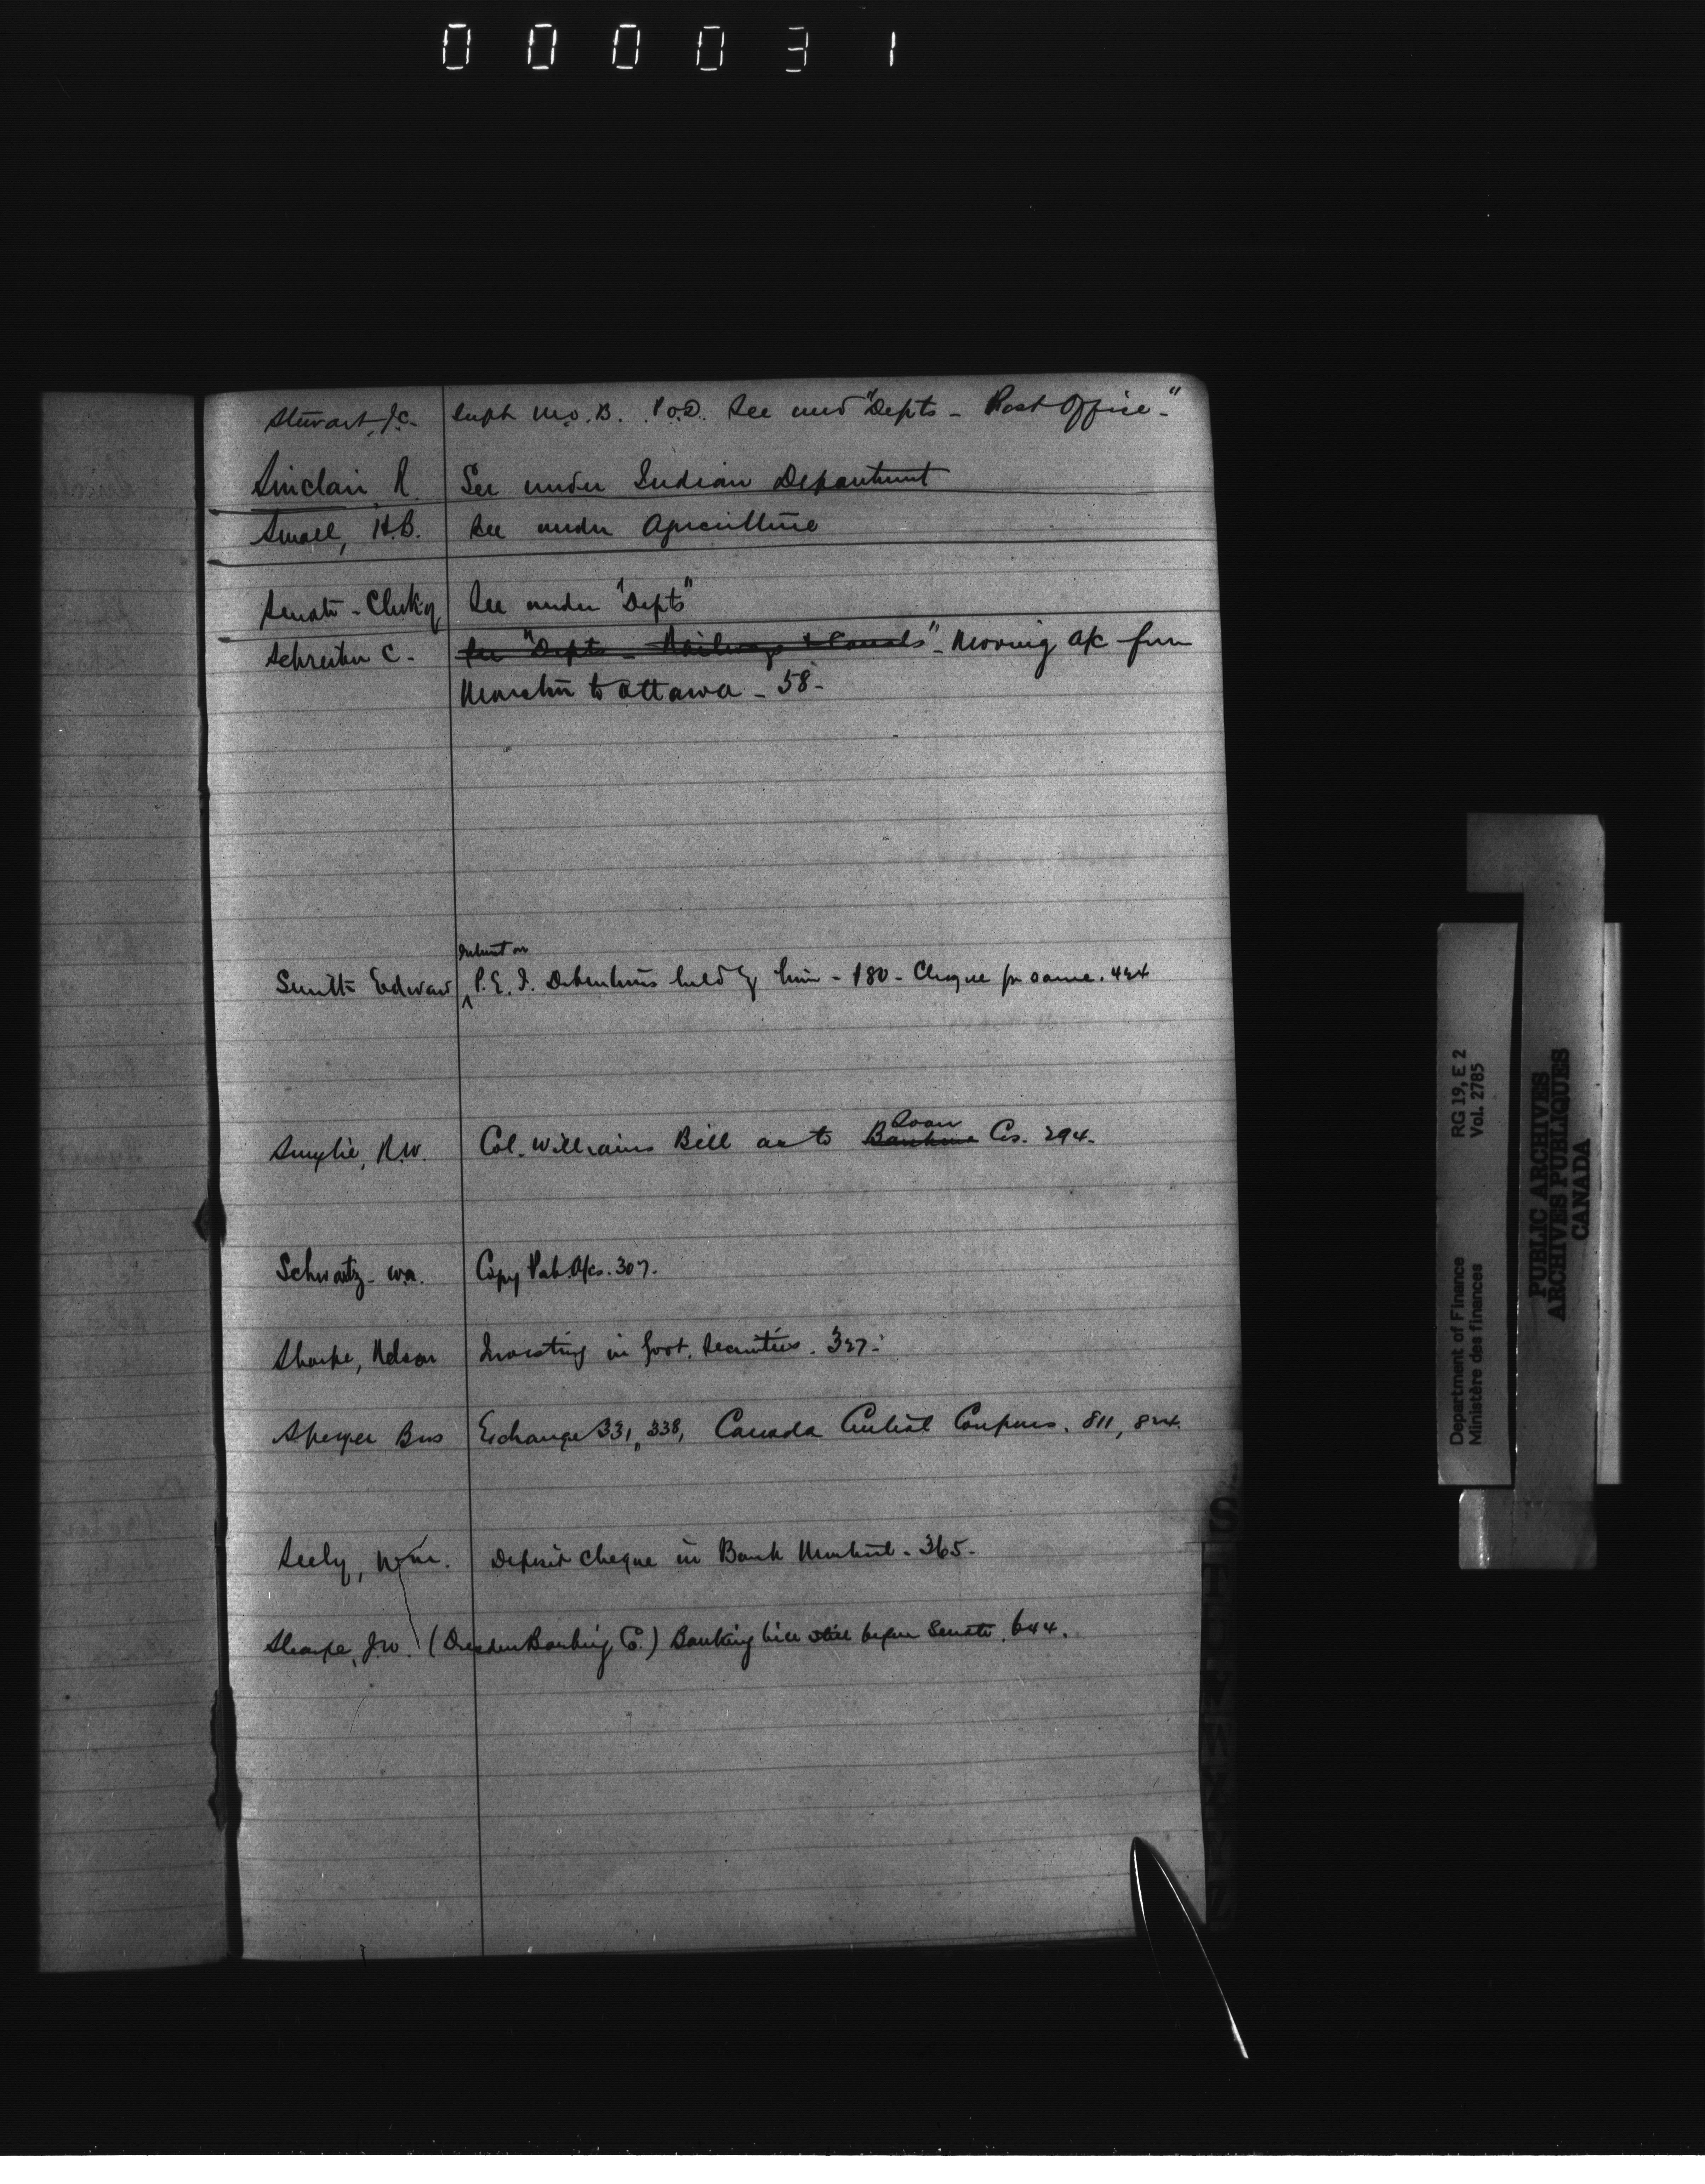 000031
Stewart, J.C. Supt M.O.B. P.O.D. See und "Depts - Post Office -"
Sinclair R. See under Indian Department
Small, H.B. See under Agriculture
Senate - Clerk of See under "Depts"
Schreiber C. - See "Depts - Railways & Canals" - Moving a/c from
Moncton to Ottawa - 58 -
Interest on
Smith Edward P.E.I. Debentures held by him - 180 - Cheque for same. 424
Loan
Smylie, R.W. Col. Williams Bill as to Cos. 294.
Schwartz - W.A. Copy Pub. A/cs. 307.
Sharpe, Nelson Investing in Govt. Securities. 327.
Speyer Bros Exchange 331, 338, Canada Central Coupons. 811, 824.
Seely, Wm. Deposit Cheque in Bank Montreal - 365 -
Sharpe, J.W. (Dresden Banking Co.) Banking bill before Senate. 644.
S
RG 19, E 2
Vol. 2785
Department of Finance
Ministère des finances
PUBLIC ARCHIVES
ARCHIVES PUBLIQUES
CANADA